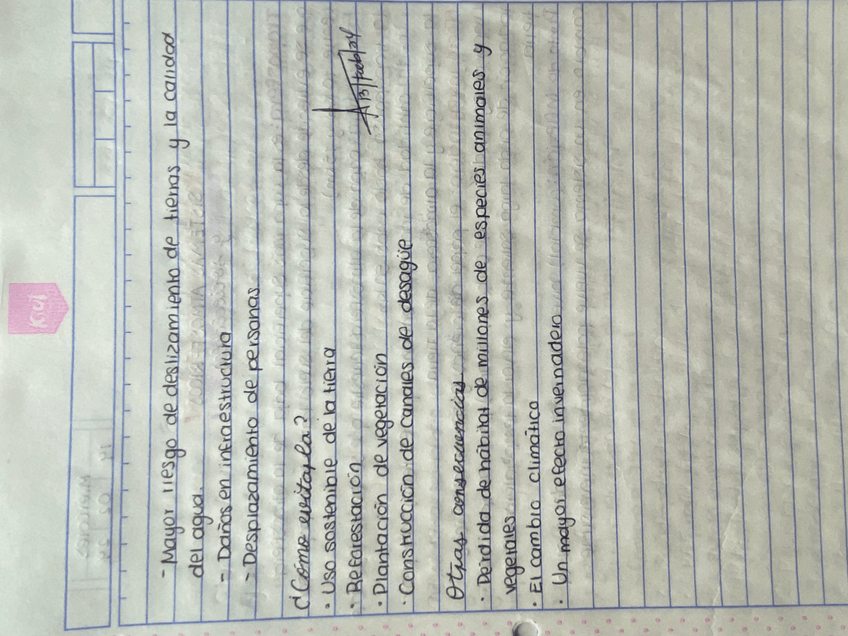 - Mayor riesgo de deslizamiento de tierras y la calidad
del agua.
- Daños en infraestructura
- Desplazamiento de personas.
¿Cómo evitarla?
• Uso sostenible de la tierra
• Reforestación
• Plantación de vegetación
• Construcción de canales de desagüe
Otras consecuencias
• Perdida de hábitat de millones de especies animales y
vegetales
• El cambio climático
• Un mayor efecto invernadero.
Kiut